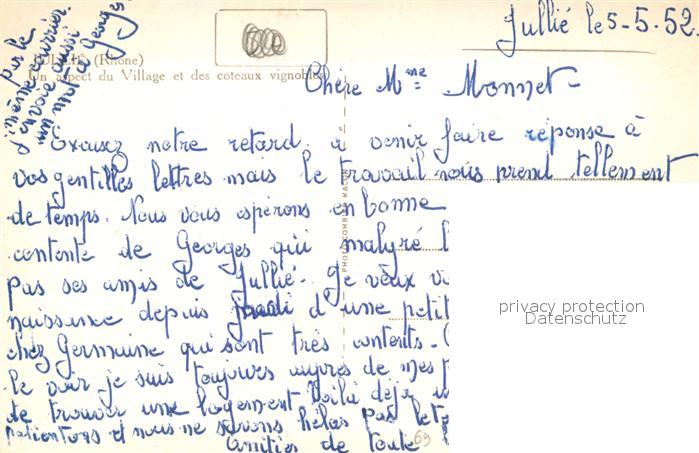 Jullié le 5-5-52.
par le
même courrier
j'envoie aussi
un mot à Georges
JULLIÉ (Rhône)
Un aspect du Village et des coteaux vignobles
Chère Mme Monnet-
Excusez notre retard à venir faire réponse à
vos gentilles lettres mais le travail nous prend tellement
de temps. Nous vous espérons en bonne
contente de Georges qui malgré l
pas ses amis de Jullié. Je veux v
naissance depuis jeudi d'une petit
chez Germaine qui sont très contents.
le voir je suis toujours auprès de mes p
de trouver une logement Voilà déjà
patientons et nous ne serons hélas pas
Amitiés de toute
69
PHOTO COMBIER MACON
privacy protection
Datenschutz